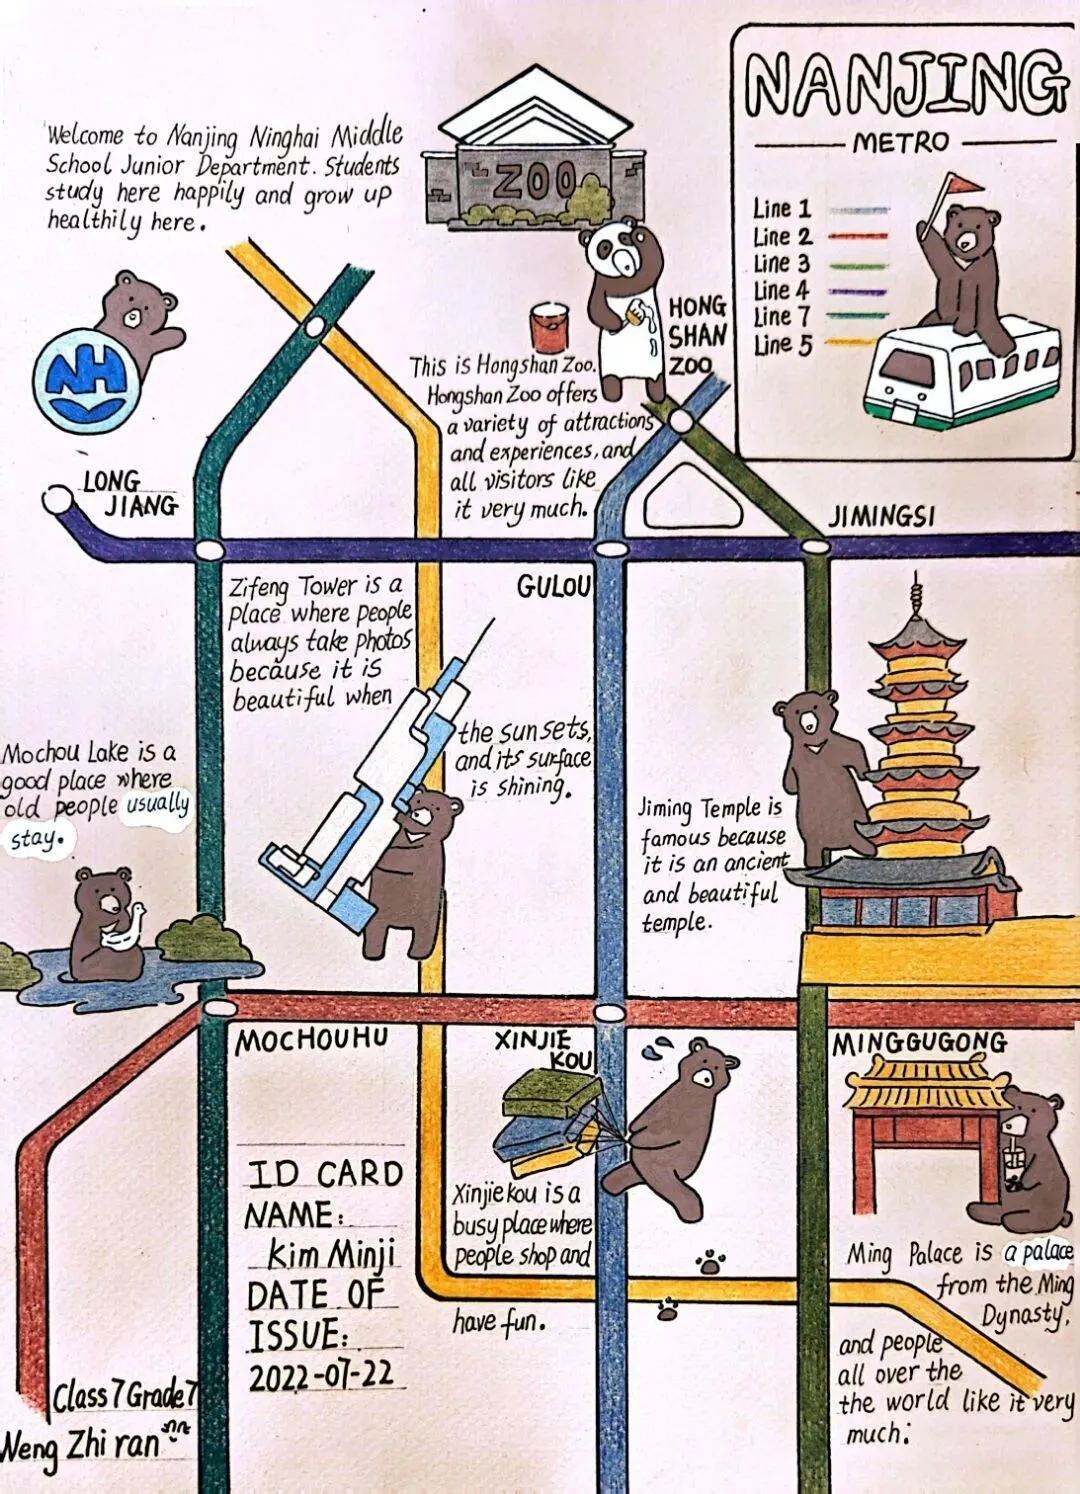 NANJING
METRO
Line 1
Line 2
Line 3
Line 4
Line 7
Line 5
Welcome to Nanjing Ninghai Middle
School Junior Department. Students
study here happily and grow up
healthily here.
ZOO
NH
HONG
SHAN
ZOO
This is Hongshan Zoo.
Hongshan Zoo offers
a variety of attractions
and experiences, and
all visitors like
it very much.
LONG
JIANG
JIMINGSI
GULOU
Zifeng Tower is a
place where people
always take photos
because it is
beautiful when
the sun sets,
and its surface
is shining.
Mochou Lake is a
good place where
old people usually
stay.
Jiming Temple is
famous because
it is an ancient
and beautiful
temple.
MOCHOUHU
XINJIE
KOU
MINGGUGONG
Xinjiekou is a
busy place where
people shop and
have fun.
ID CARD
NAME:
Kim Minji
DATE OF
ISSUE:
2022-07-22
Ming Palace is a palace
from the Ming
Dynasty,
and people
all over the
the world like it very
much.
Class 7 Grade 7
Weng Zhi ran